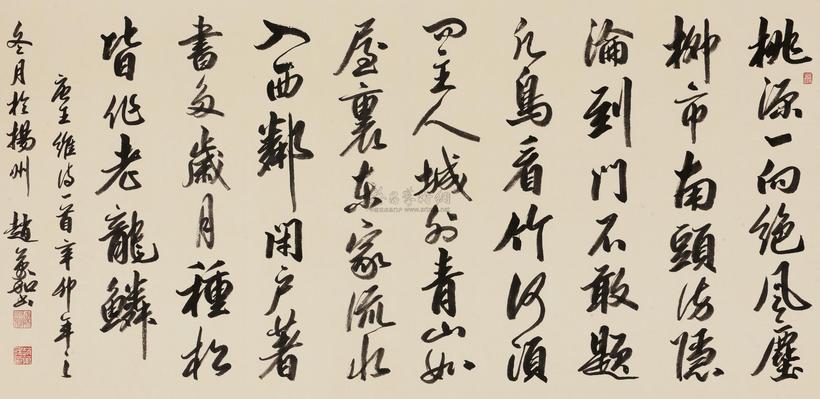 桃源一向絶風塵
柳市南頭訪隱
淪到門不敢題
凡鳥看竹何須
問主人城外青山如
屋裏東家流水
入西鄰閉戶著
書多歲月種松
皆作老龍鱗
唐王維詩一首辛卯年之
冬月於揚州 趙